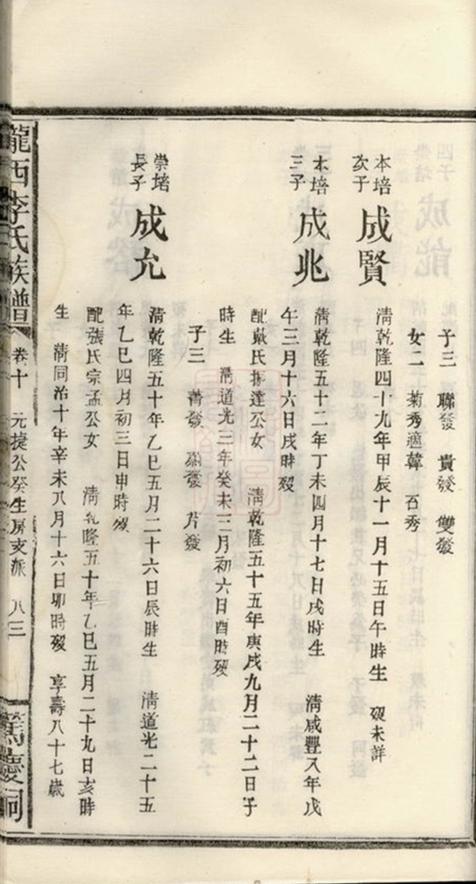 子三 聯發 貴發 雙發
女二 菊秀適韓 石秀
本培次子 成賢 清乾隆四十九年甲辰十一月十五日午時生 歿未詳
本培三子 成兆 清乾隆五十二年丁未四月十七日戌時生 清咸豐八年戊
午三月十六日戌時歿
配戴氏振達公女 清乾隆五十五年庚戌九月二十二日子
時生 清道光三年癸未三月初六日酉時歿
子三 發 發 片發
崇堵長子 成允 清乾隆五十年乙巳五月二十六日辰時生 清道光二十五
年乙巳四月初三日申時歿
配張氏宗孟公女 清乾隆五十年乙巳五月二十九日亥時
生 清同治十年辛未八月十六日卯時歿 享壽八十七歲
隴西李氏族譜 卷十 元捷公癸生房支派 八三 篤慶祠